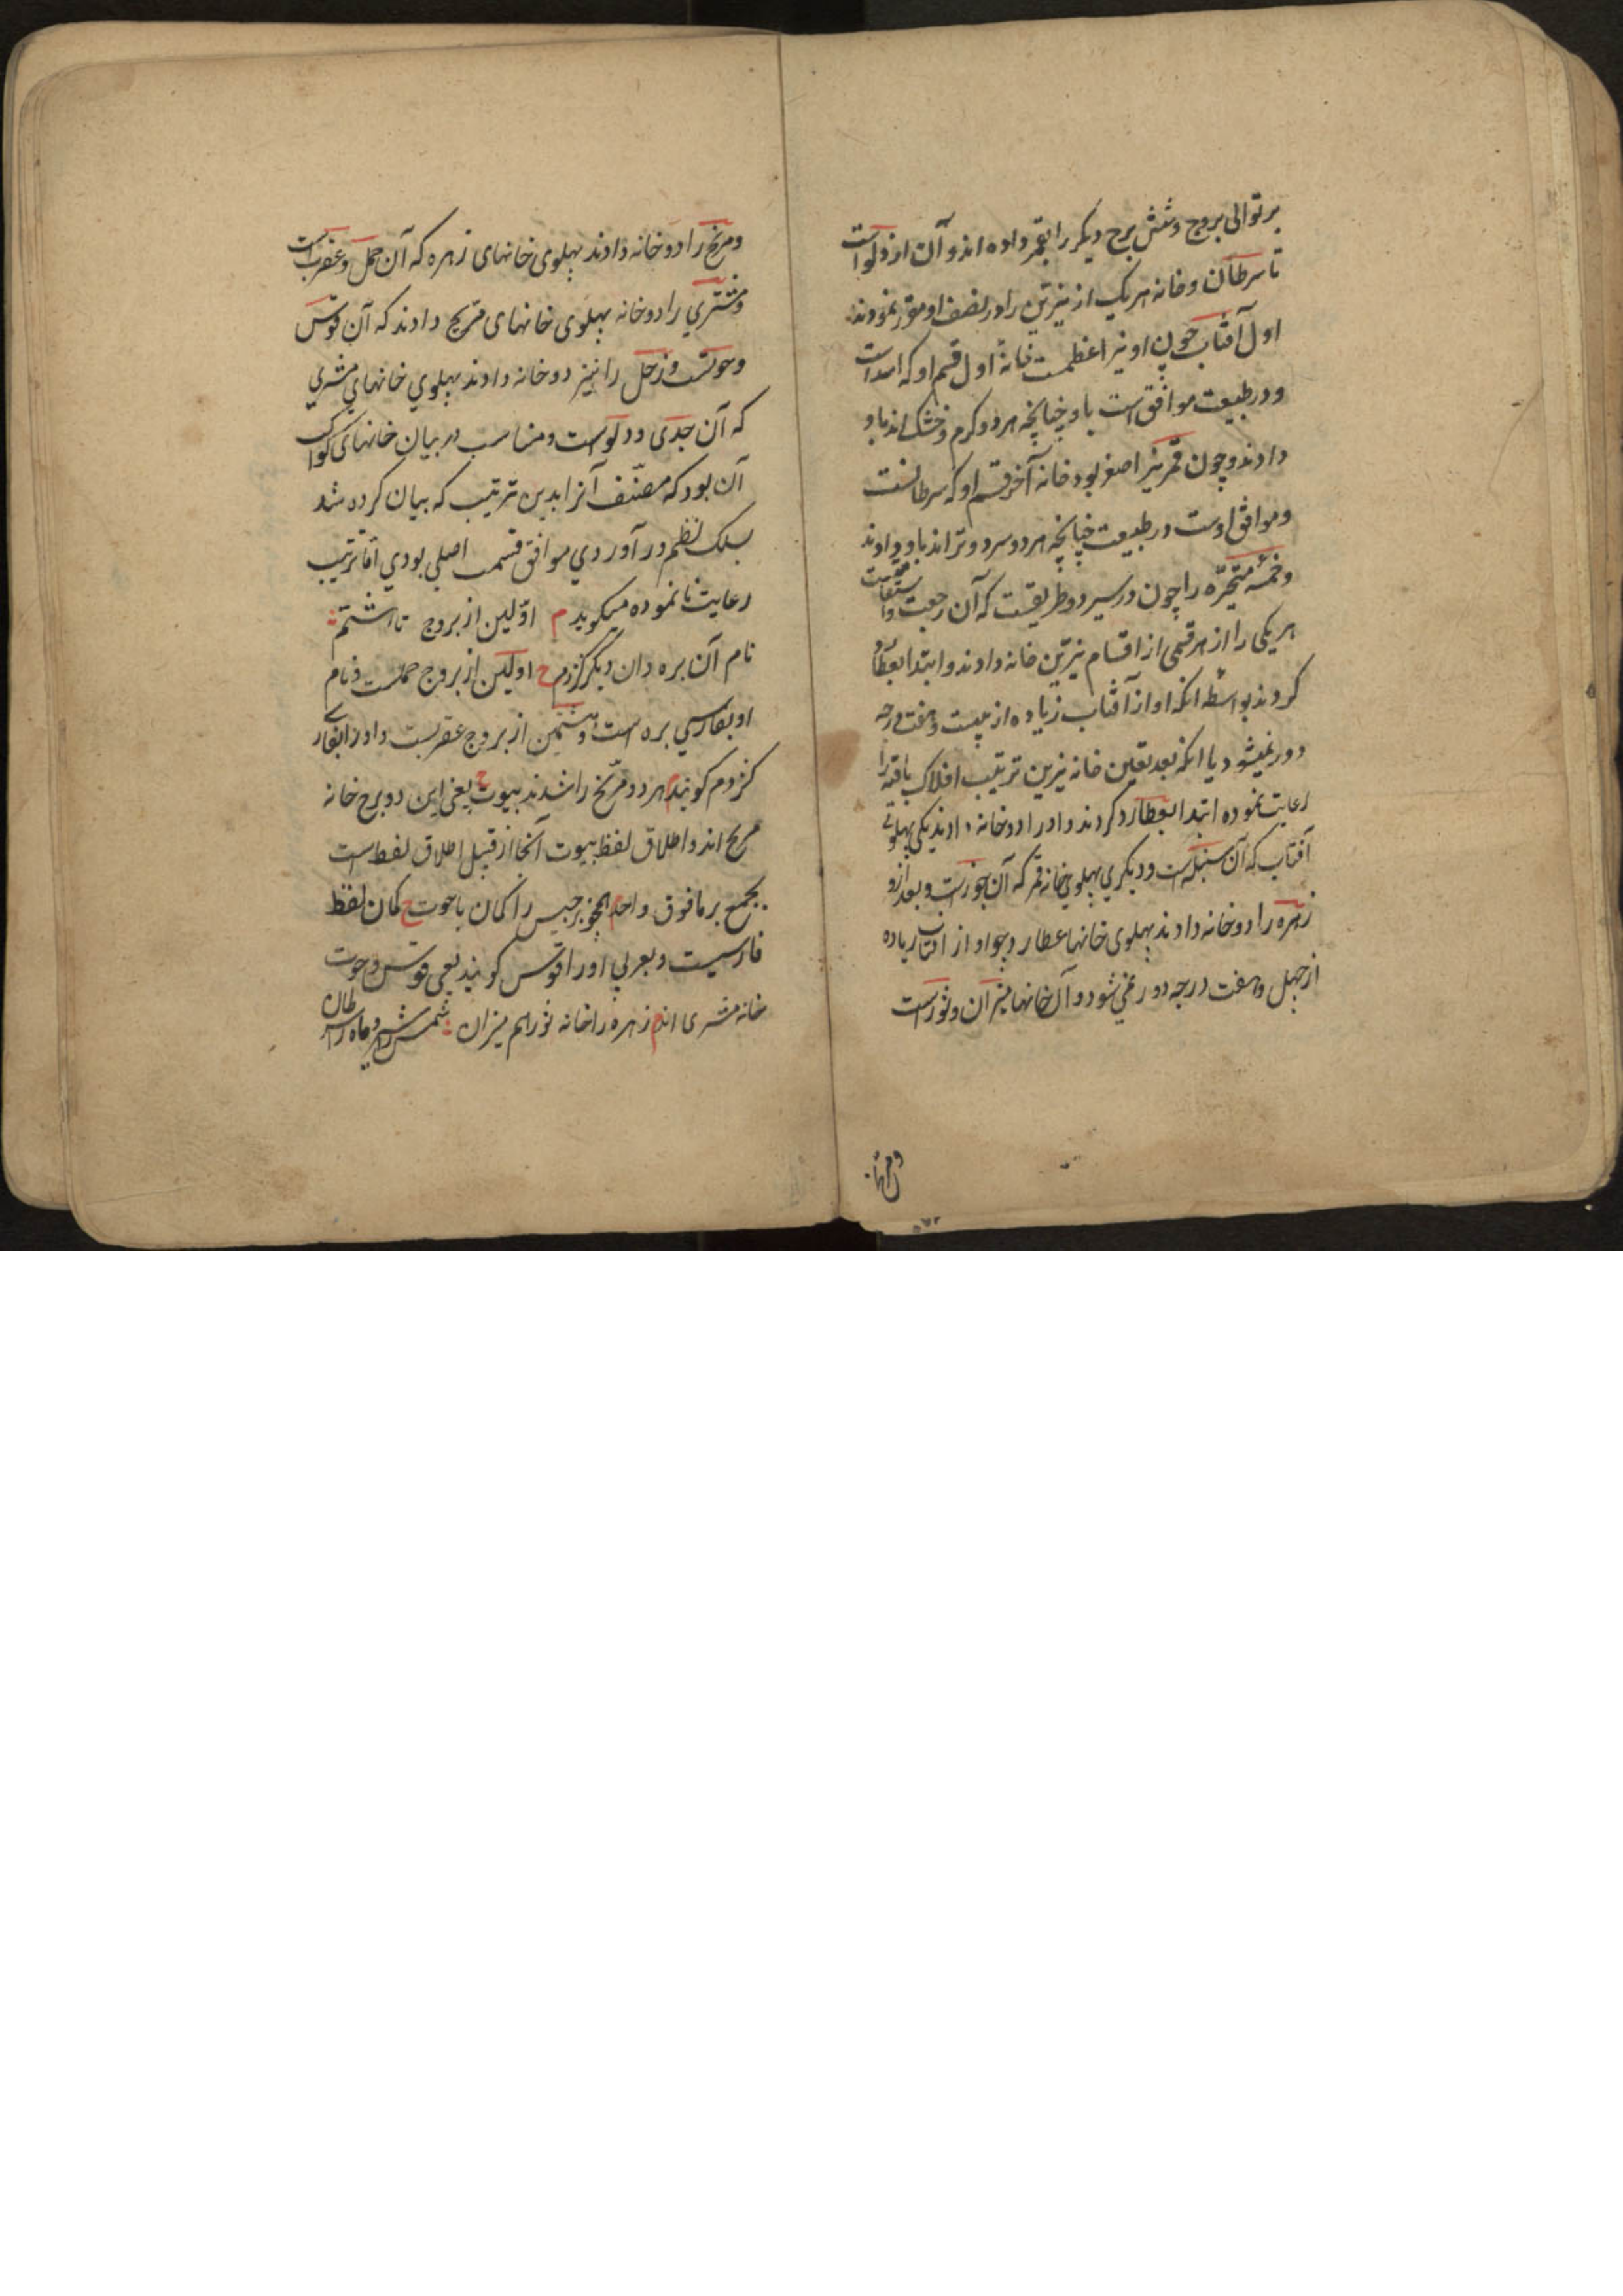 بر توالی بروج و شش برج دیکر را بقمر داده اند و آن از دلو است
تا سرطان و خانه هر یک از نیرین را در نصف او مقرر نمودند
اول آفتاب چون او نیر اعظمست خانهٔ اول قسم او که اسد است
و در طبیعت موافق است باو چنانچه هر دو کرم و خشک اند باو
دادند و چون قمر نیر اصغر بود خانه آخر قسم او که سرطانست
و موافق اوست در طبیعت چنانچه هر دو سرد و تر اند باو دادند
و خمسهٔ متحیّره را چون در سیر دو طریقست که آن رجعت و استقامت
هر یکی را از هر قسمی از اقسام نیرّین خانه دادند و ابتدا بعطارد
کردند بواسطه انکه او از آفتاب زیاده از بیست و هفت درجه
دور نمیشود یا انکه بعد تعین خانه نیرین ترتیب افلاک باقیه را
رعایت نموده ابتدا بعطارد کردند و او را دو خانه دادند یکی پهلوی
آفتاب که آن سنبله است و دیکری پهلوی خانه قمر که آن جوزاست و بعد ازو
زهره را دو خانه دادند پهلوی خانها عطارد چو او از آفتاب زیاده
از چهل و هفت درجه دور نمی شود و آن خانها میزان و ثور است
و مریخ را دو خانه دادند پهلوی خانهای زهره که آن حمل و عقرب است
و مشتری را دو خانه پهلوی خانهای مریخ دادند که آن قوس
و حوتست و زحل را نیز دو خانه دادند پهلوی خانهای مشتری
که آن جدی و دلوست و مناسب در بیان خانهای کواکب
آن بود که مصنّف آنرا بدین ترتیب که بیان کرده شد
بسلک نظم در آوردی موافق قسمت اصلی بودی امّا ترتیب
رعایت نا نموده میکوید م اوّلین از بروج تا هشتم
نام آن بره دان دیگر کژدم ح اولین از بروج حملست و نام
او بفارسی بره است و هشتمین از بروج عقربست و او را بفارسی
کزدم کویند م هر دو مرّیخ را شدند بیوت ح یعنی این دو برج خانه
مریخ اند و اطلاق لفظ بیوت آنجا از قبیل اطلاق لفظ است
بجمع بر مافوق واحد م همچو برجیس را کمان با حوت ح کمان لفظ
فارسیست و بعربی او را قوس کویند یعنی قوس و حوت
خانه مشتری اند م زهره را خانه ثور هم میزان : شمس را شیر و ماه را سرطان